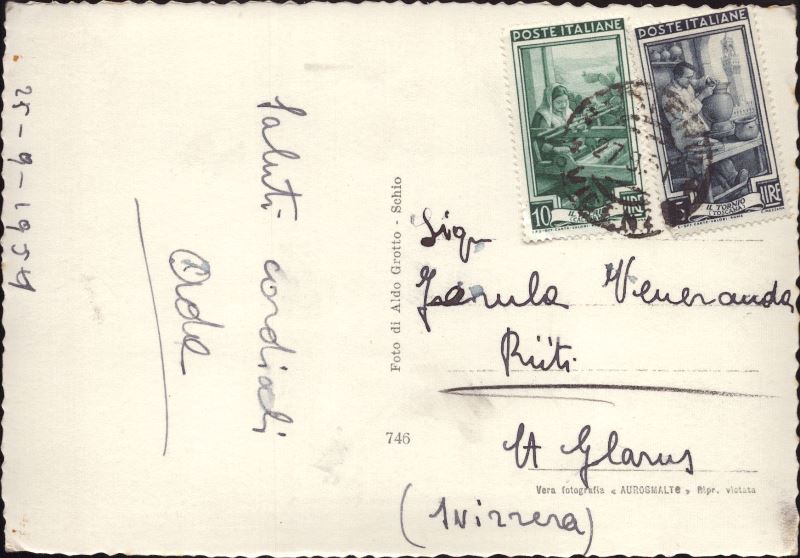 25-9-1954
Saluti cordiali
Ada
Foto di Aldo Grotto - Schio
746
POSTE ITALIANE
10
LIRE
POSTE ITALIANE
5
LIRE
IL TORNIO
(TOSCANA)
Sig.
Zanula Veneranda
Rüti
Ct Glarus
(Svizzera)
Vera fotografia « AUROSMALTO » Ripr. vietata